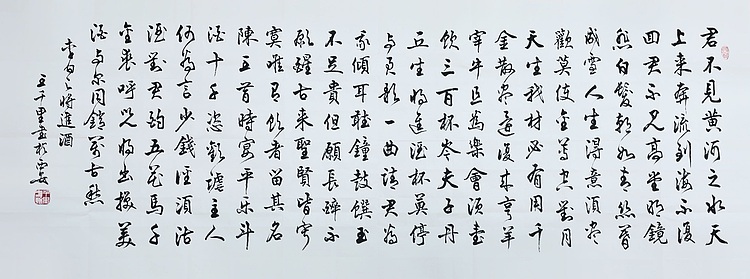 君不見黄河之水天
上来奔流到海不復
回君不見高堂明鏡
悲白髮朝如青絲暮
成雪人生得意須盡
歡莫使金尊空對月
天生我材必有用千
金散盡還復来亨羊
宰牛且爲樂會須壹
飲三百杯岑夫子丹
丘生將進酒杯莫停
与君歌一曲請君爲
我傾耳聴鐘鼓饌玉
不足貴但願長醉不
願醒古来聖賢皆寂
寞唯有飲者留其名
陳王昔時宴平乐斗
酒十千恣歡謔主人
何爲言少錢径須沽
酒對君酌五花馬千
金裘呼児將出換美
酒与尔同銷萬古愁
李白之將進酒
王千里書於西安